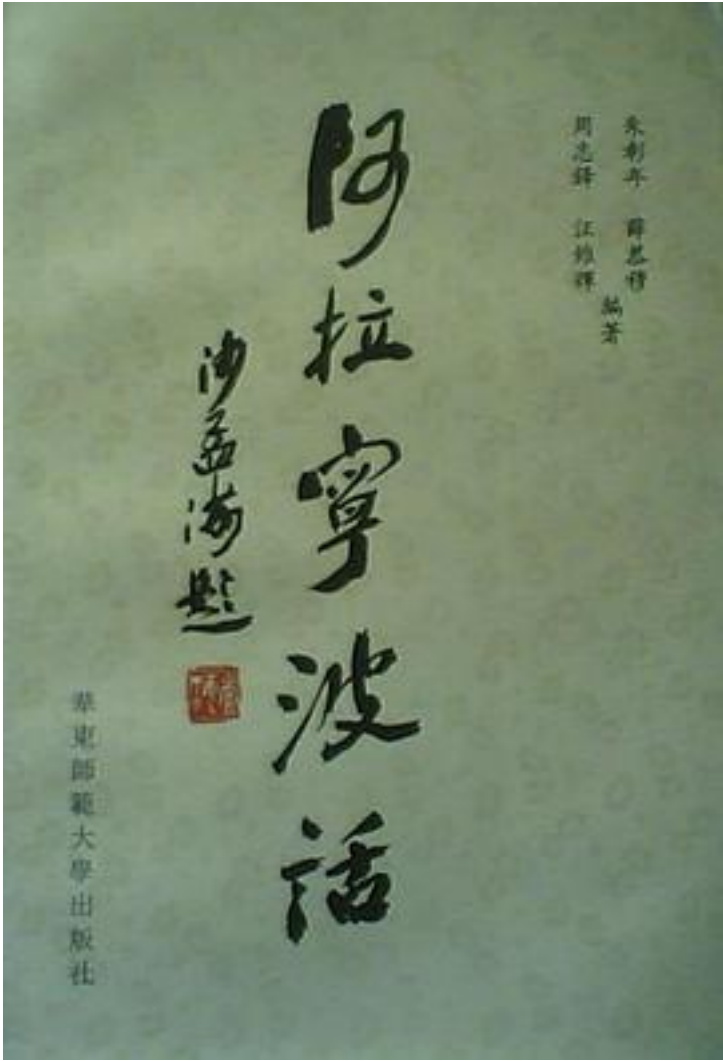 朱彰年 薛恭穆
周志鋒 汪維輝
編著
阿拉寧波話
沙孟海題
華東師範大學出版社